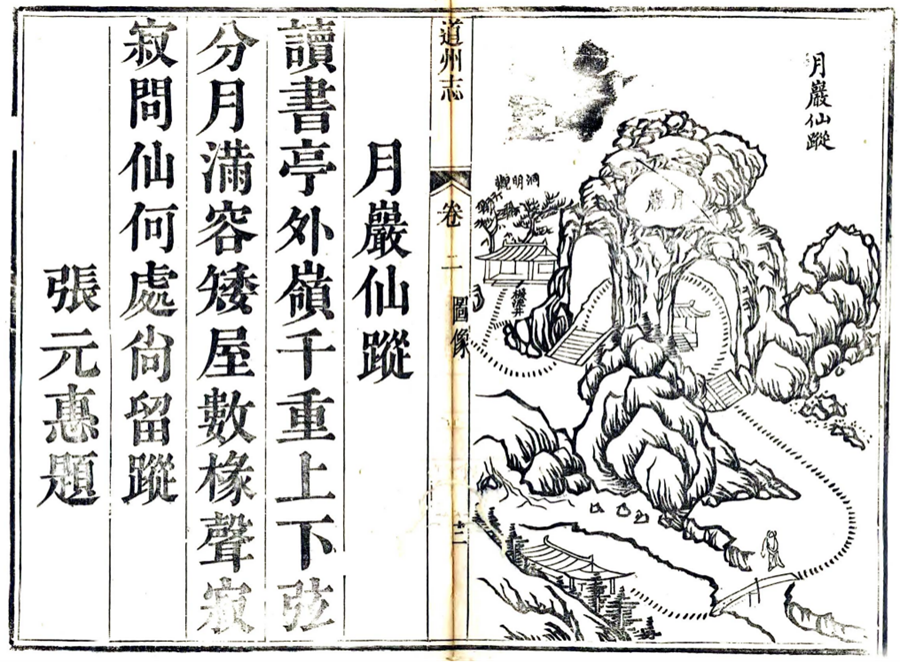 月巖仙蹤
月巖
洞明觀
道州志
卷二
圖像
月巖仙蹤
讀書亭外嶺千重上下弦
分月滿容矮屋數椽聲寂
寂問仙何處尙留蹤
張元惠題